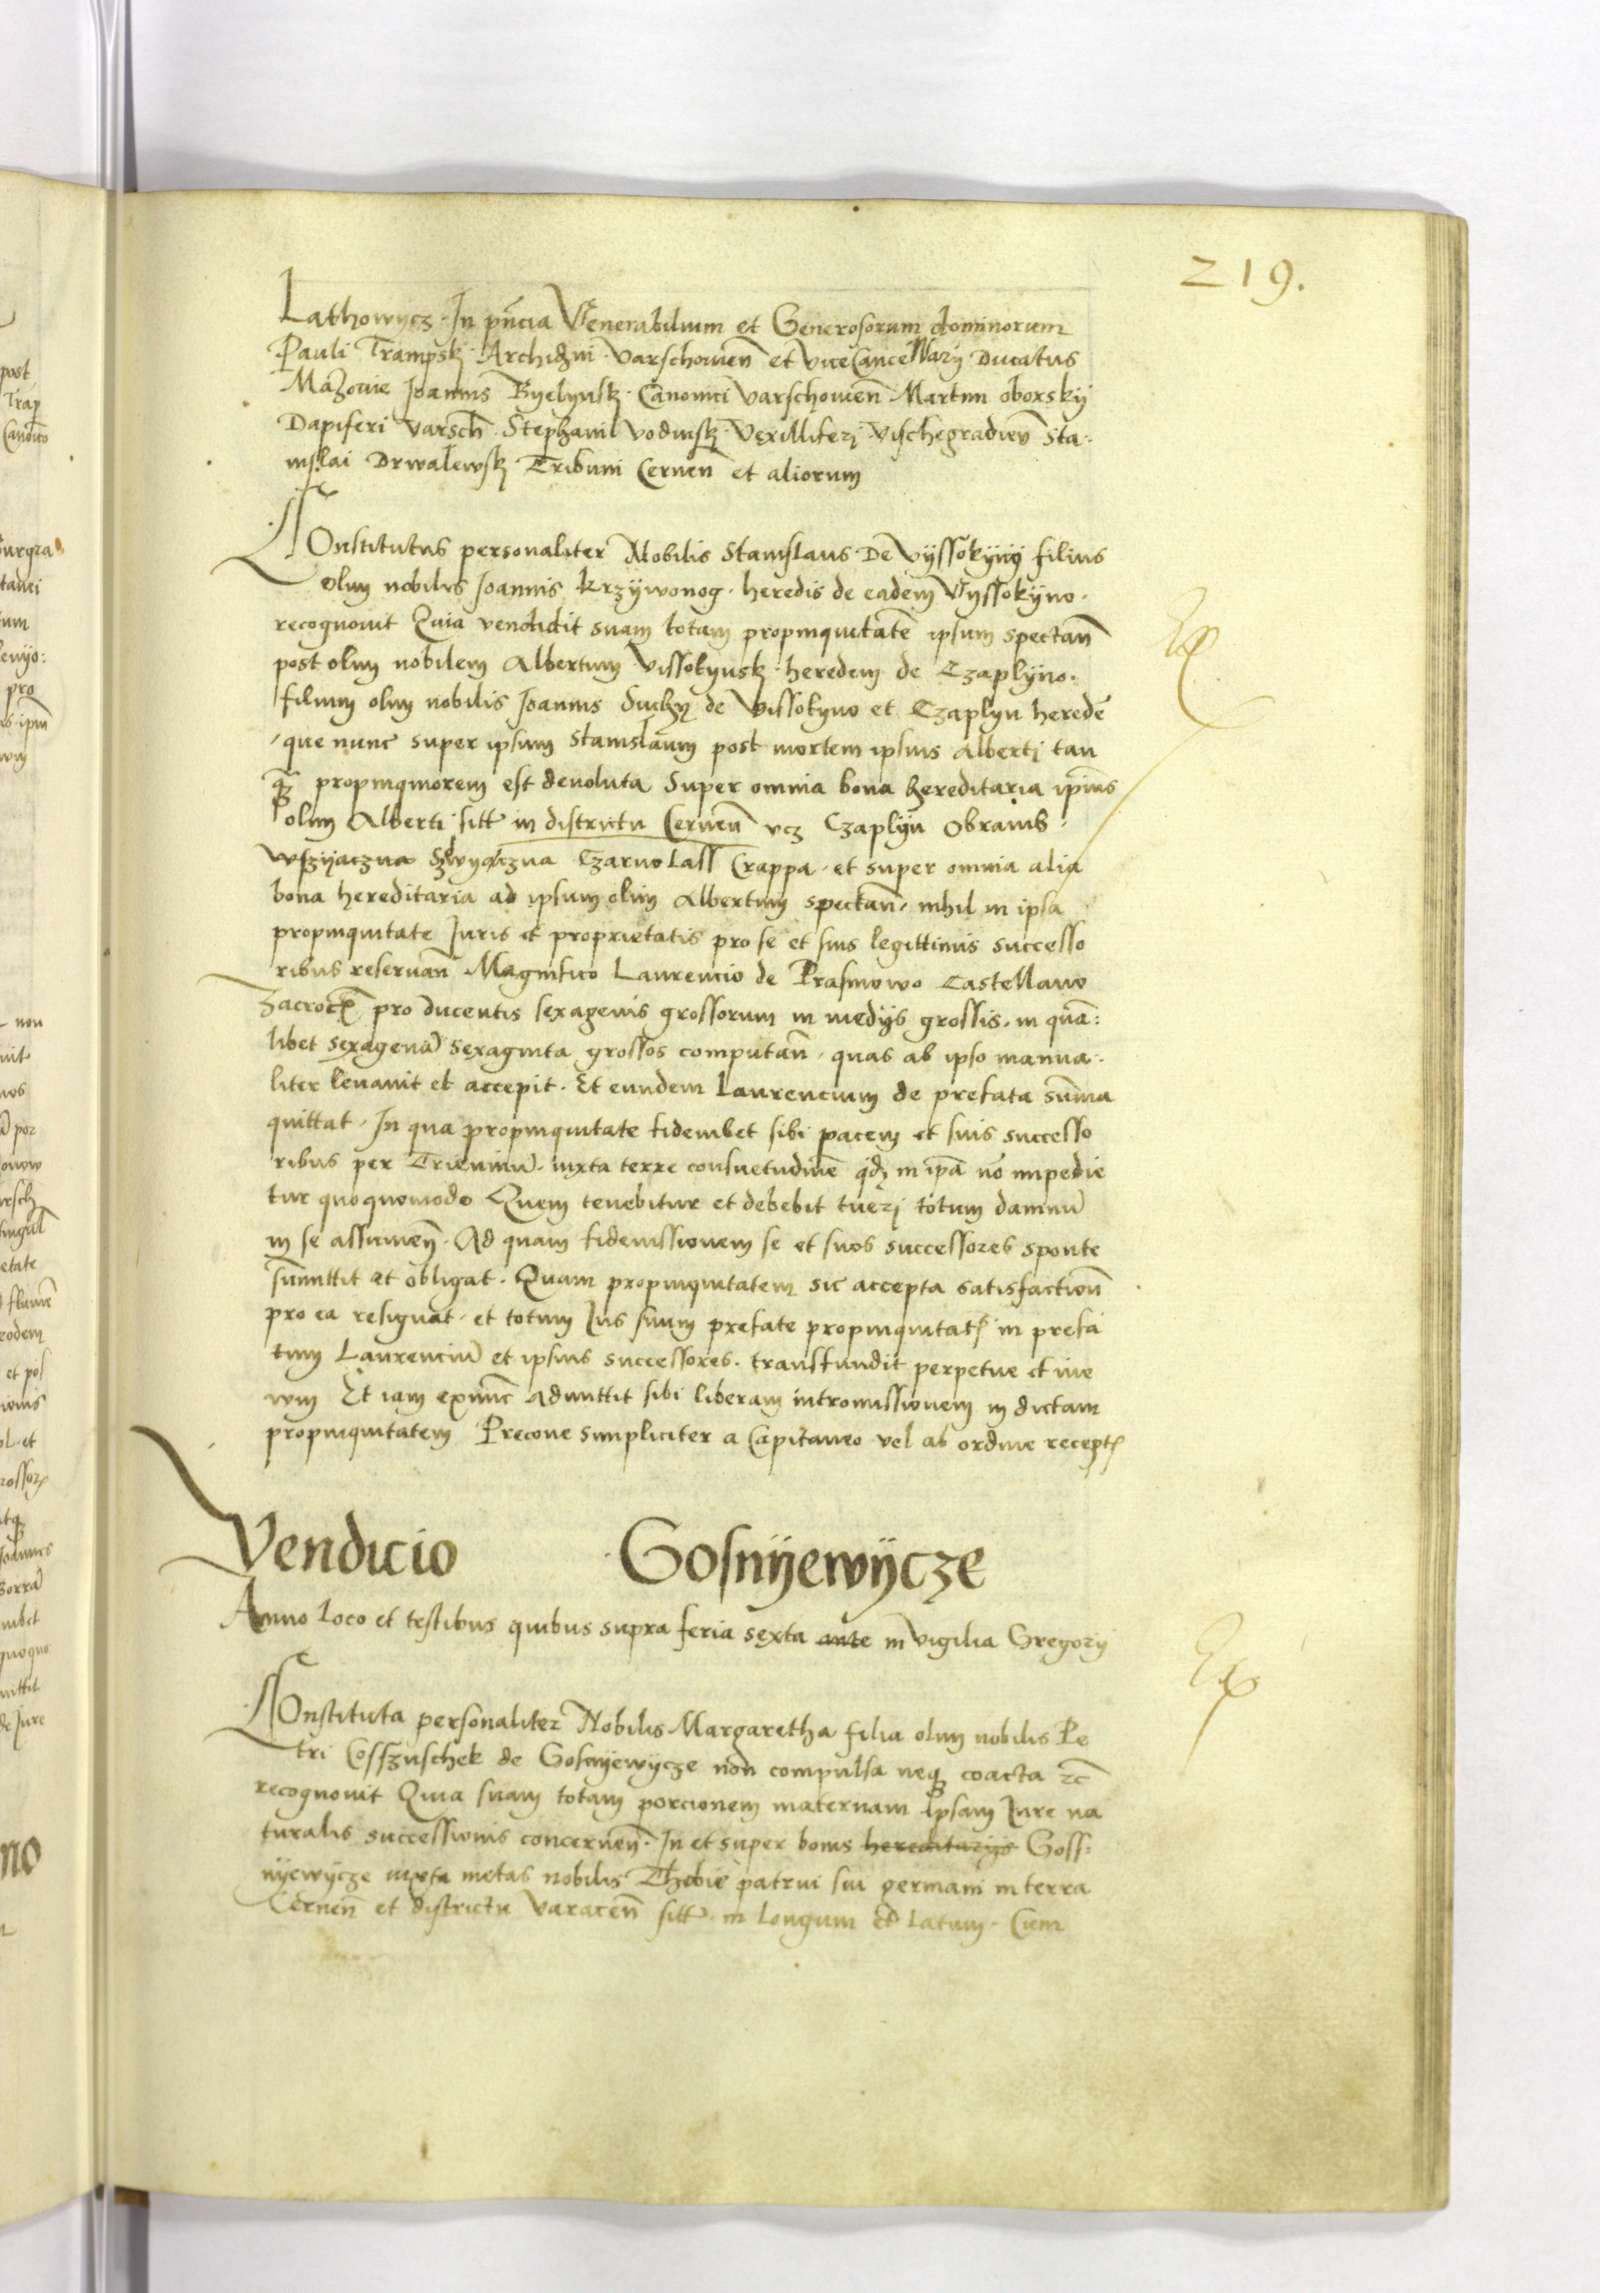 219.
Lathowycz · In pñcia Venerabilium et Generosorum dominorum
Pauli Trampsk · Archidni · Varschouieñ et ViceCancellarij Ducatus
Mazouie Joannis Byelynsk · Canonici Varschouieñ Martini oborskij
Dapiferi Varsch̃ · Stephani vodinsk · Vexilliferi · Vischegradieñ Sta-
nislai Drwalewsk Tribuni Cerneñ et aliorum
Constitutus personaliter Nobilis Stanislaus De Vyssokyny filius
olim nobilis Joannis krzywonog · heredis de eadem Vyssokyno ·
recognouit Quia vendidit suam totam propinquitatẽ ipsum spectañ
post olim nobilem Albertum Vissokynsk · heredem de Czaplyno ·
filium olim nobilis Joannis Suchy de Vissokyno et Czaplyn heredẽ
que nunc super ipsum Stanislaum post mortem ipsius Alberti tan
q̃ propinquiorem est deuoluta Super omnia bona hereditaria ip̃ius
olim Alberti sitt in districtu Cerneñ vcz Czaplyn Obrambs ·
Czarnolass Crappa · et super omnia alia
bona hereditaria ad ipsum olim Albertum spectañ · nihil in ipsa
propinquitate Juris et proprietatis pro se et suis legittimis successo
ribus reseruañ Magnifico Laurencio de Prasnowo Castellano
Zacrocz̃ pro ducentis sexagenis grossorum in medijs grossis · in quã:
libet sexagenã sexaginta grossos computañ · quas ab ipso manua-
liter leuauit et accepit · Et eundem Laurencium de prefata sum̃a
quittat · In qua propinquitate fideiubet sibi pacem et suis successo
ribus per Trieniũ · iuxta terre consuetudinẽ qd in ip̃a nõ impedie
tur quoquomodo Quem tenebitur et debebit tueri totum damnũ
in se assumeñ · Ad quam fideiussionem se et suos successores sponte
sum̃ittit et obligat · Quam propinquitatem sic accepta satisfactioñ
pro ea resignat · et totum Jus suum prefate propinquitat in prefa
tum Laurenciũ et ipsius successores · transfundit perpetue et in e
wm Et iam exnunc admittit sibi liberam intromissionem in dictam
propinquitatem Precone simpliciter a Capitaneo vel ab ordine recept
Vendicio Gosnyewycze
Anno loco et testibus quibus supra feria sexta ante in Vigilia Gregorij
Constituta personaliter Nobilis Margaretha filia olim nobilis Pe
tri Cosszuschek de Gosnyewycze non compulsa neq coacta etc̃
recognouit Quia suam totam porcionem maternam ipsam Jure na
turalis successionis concerneñ · In et super bonis hereditarijs Goss:
nyewycze iuxta metas nobilis Thobie patrui sui germani in terra
Cerneñ et districtu Varaceñ sitt · in longum et latum · Cum